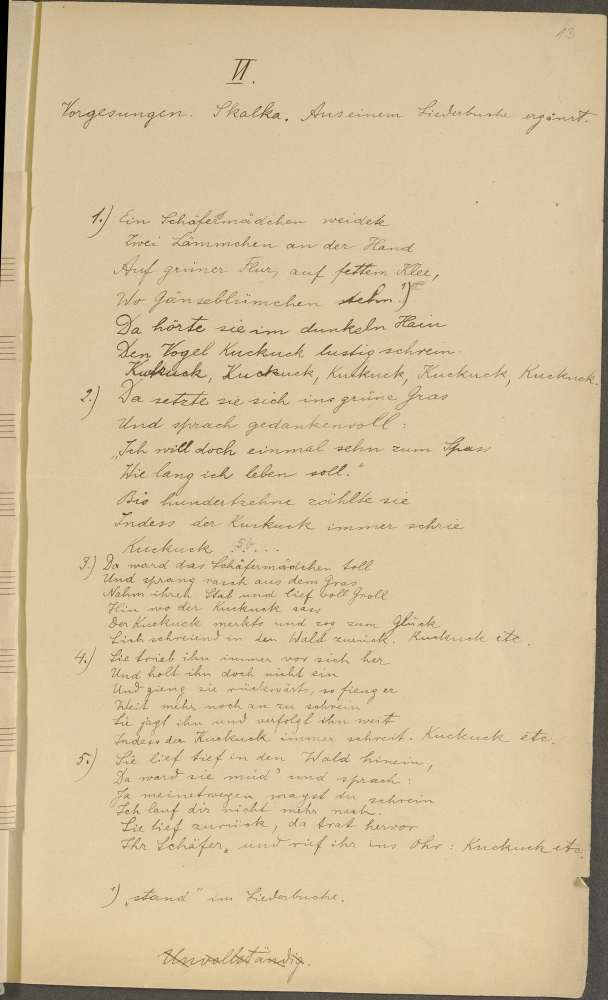 13
VI.
Vorgesungen. Skalka. Aus einem Liederbuche ergänzt.
1.) Ein Schäfermädchen weidete
Zwei Lämmchen an der Hand
Auf grüner Flur, auf fettem Klee,
Wo Gänseblümchen stehn.¹)
Da hörte sie im dunkeln Hain
Den Vogel Kuckuck lustig schrein.
Kuckuck, Kuckuck, Kuckuck, Kuckuck, Kuckuck.
2.) Da setzte sie sich ins grüne Gras
Und sprach gedankenvoll:
„Ich will doch einmal sehn zum Spass
Wie lang ich leben soll."
Bis hundertzehne zählte sie
Indess der Kuckuck immer schrie
Kuckuck
3.) Da ward das Schäfermädchen toll
Und sprang rasch aus dem Gras
Nahm ihren Stab und lief voll Groll
Hin wo der Kuckuck sass
Der Kuckuck merkts und zog zum Glück
Sich schreiend in den Wald zurück. Kuckuck etc.
4.) Sie trieb ihn immer vor sich her
Und holt ihn doch nicht ein
Und gieng sie rückwärts, so fieng er
Weit mehr noch an zu schrein
Sie jagt ihn und verfolgt ihn weit
Indess der Kuckuck immer schreit. Kuckuck etc.
5.) Sie lief tief in den Wald hinein,
Da ward sie müd' und sprach:
Ja meinetwegen magst du schrein
Ich lauf dir nicht mehr nach.
Sie lief zurück, da trat hervor
Ihr Schäfer, und rief ihr ins Ohr: Kuckuck etc.
¹) „stand" im Liederbuche.
Unvollständig.